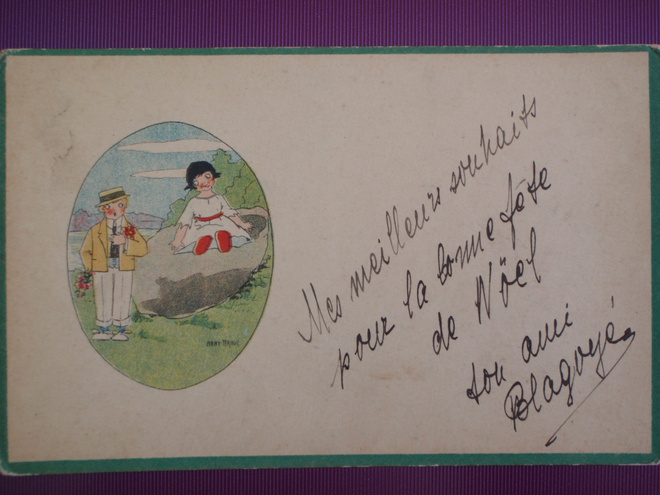 Mes meilleurs souhaits
pour la bonne fête
de Nöel
ton ami
Blagoyé